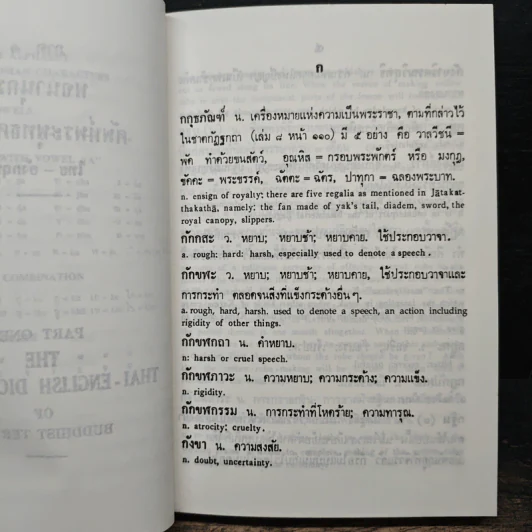 ก
กกุธภัณฑ์ น. เครื่องหมายแห่งความเป็นพระราชา, ตามที่กล่าวไว้
ในชาตกัฏฐกถา (เล่ม ๘ หน้า ๑๑๐) มี ๕ อย่าง คือ วาลวีชนี =
พัด ทำด้วยขนสัตว์, อุณหิส = กรอบพระพักตร์ หรือ มงกุฎ,
ขัคคะ = พระขรรค์, ฉัตตะ = ฉัตร, ปาทุกา = ฉลองพระบาท.
n. ensign of royality; there are five regalia as mentioned in Jātakat-
thakathā, namely; the fan made of yak's tail, diadem, sword, the
royal canopy, slippers.
กักกสะ ว. หยาบ; หยาบช้า; หยาบคาย. ใช้ประกอบวาจา.
a. rough: hard: harsh, especially used to denote a speech.
กักขฬะ ว. หยาบ; หยาบช้า; หยาบคาย, ใช้ประกอบวาจาและ
การกระทำ ตลอดจนสิ่งที่แข็งกระด้างอื่น ๆ.
a. rough, hard, harsh. used to denote a speech, an action including
rigidity of other things.
กักขฬกถา น. คำหยาบ.
n: harsh or cruel speech.
กักขฬภาวะ น. ความหยาบ; ความกระด้าง; ความแข็ง.
n. rigidity.
กักขฬกรรม น. การกระทำที่โหดร้าย; ความทารุณ.
n. atrocity; cruelty.
กังขา น. ความสงสัย.
n. doubt, uncertainty.